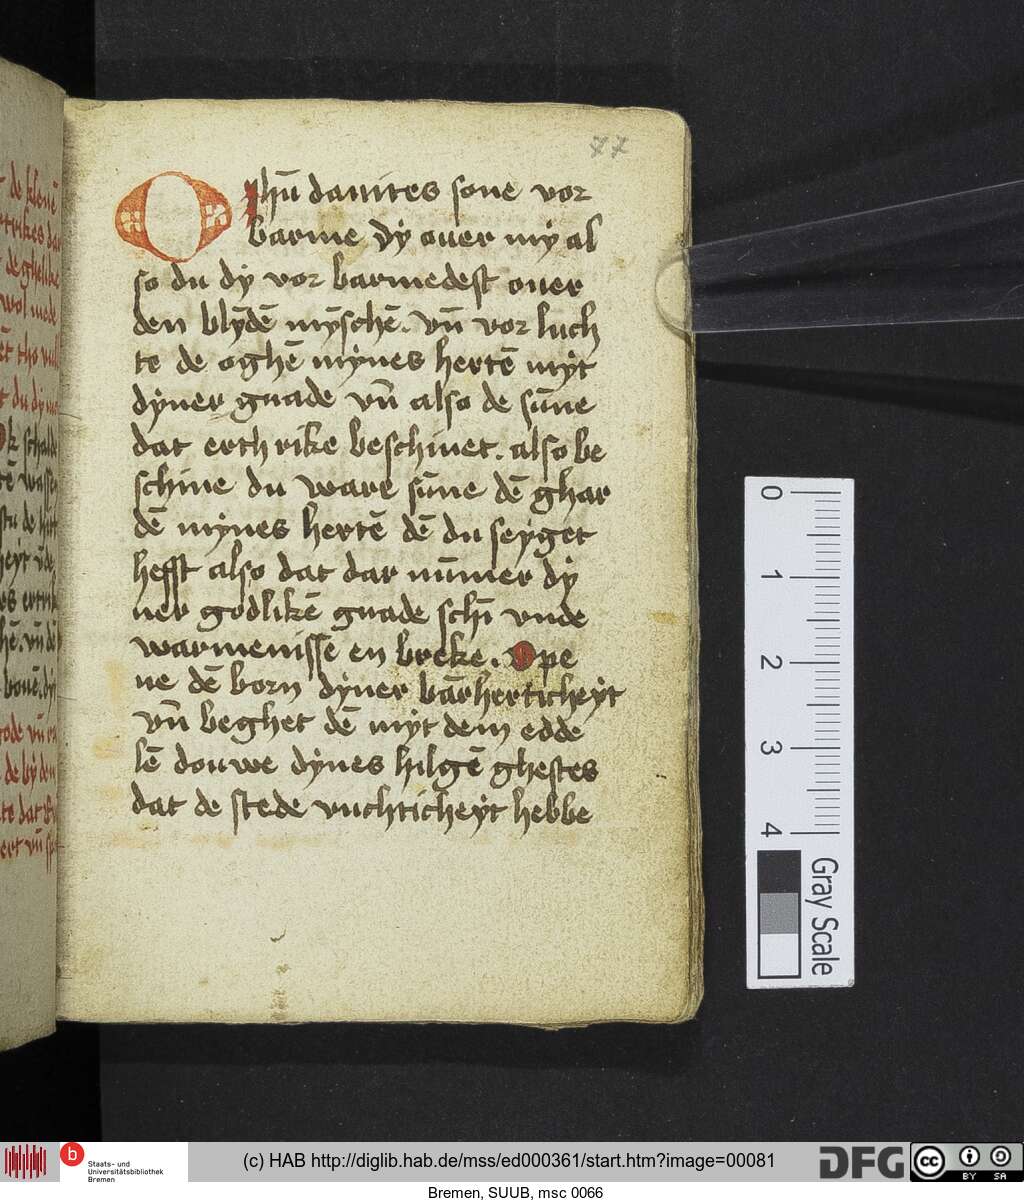 77
O ihū dauites sone vor
barme dÿ ouer mÿ al
so du dÿ vor barmedest ouer
den blÿdē mÿschē. vn̄ vor luch
te de oghē mÿnes hertē mÿt
dÿner gnade vn̄ also de sūne
dat erthrike beschinet. also be
schine du ware sūne dē ghar
dē mÿnes hertē dē du seÿget
hefft also dat dar nūmer dÿ
ner godlikē gnade schī vnde
warmenisse en breke. Ope
ne dē born dÿner bārherticheÿt
vn̄ beghet dē mÿt dem edde
lē douwe dÿnes hilgē ghestes
dat de stede vuchticheÿt hebbe
0
1
2
3
4
Gray Scale
b
Staats- und
Universitätsbibliothek
Bremen
(c) HAB http://diglib.hab.de/mss/ed000361/start.htm?image=00081
DFG
cc BY SA
Bremen, SUUB, msc 0066